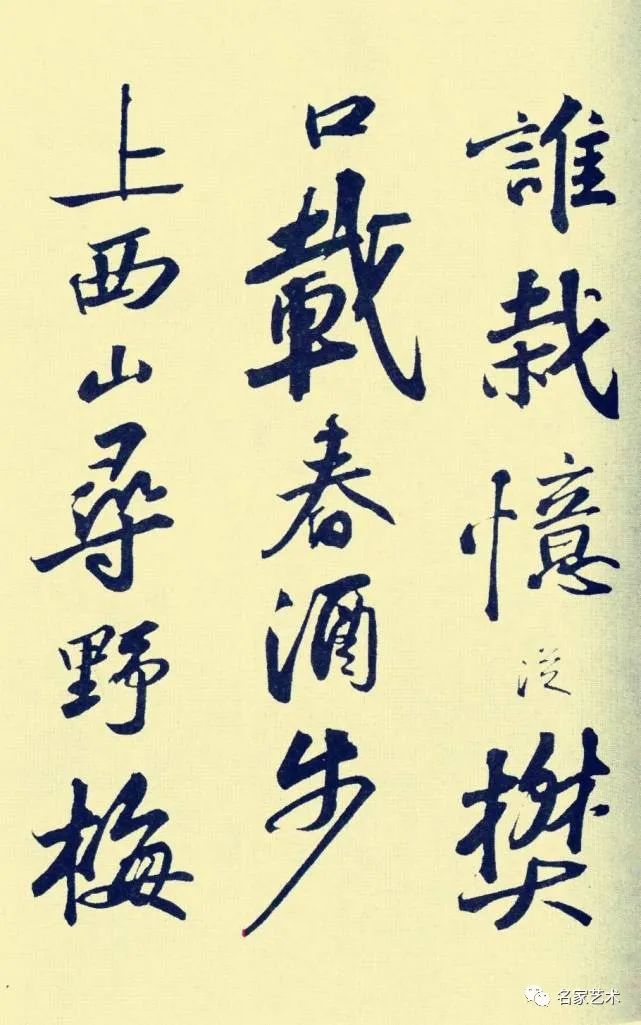 誰栽憶從樊
口載春酒步
上西山尋野梅
名家艺术